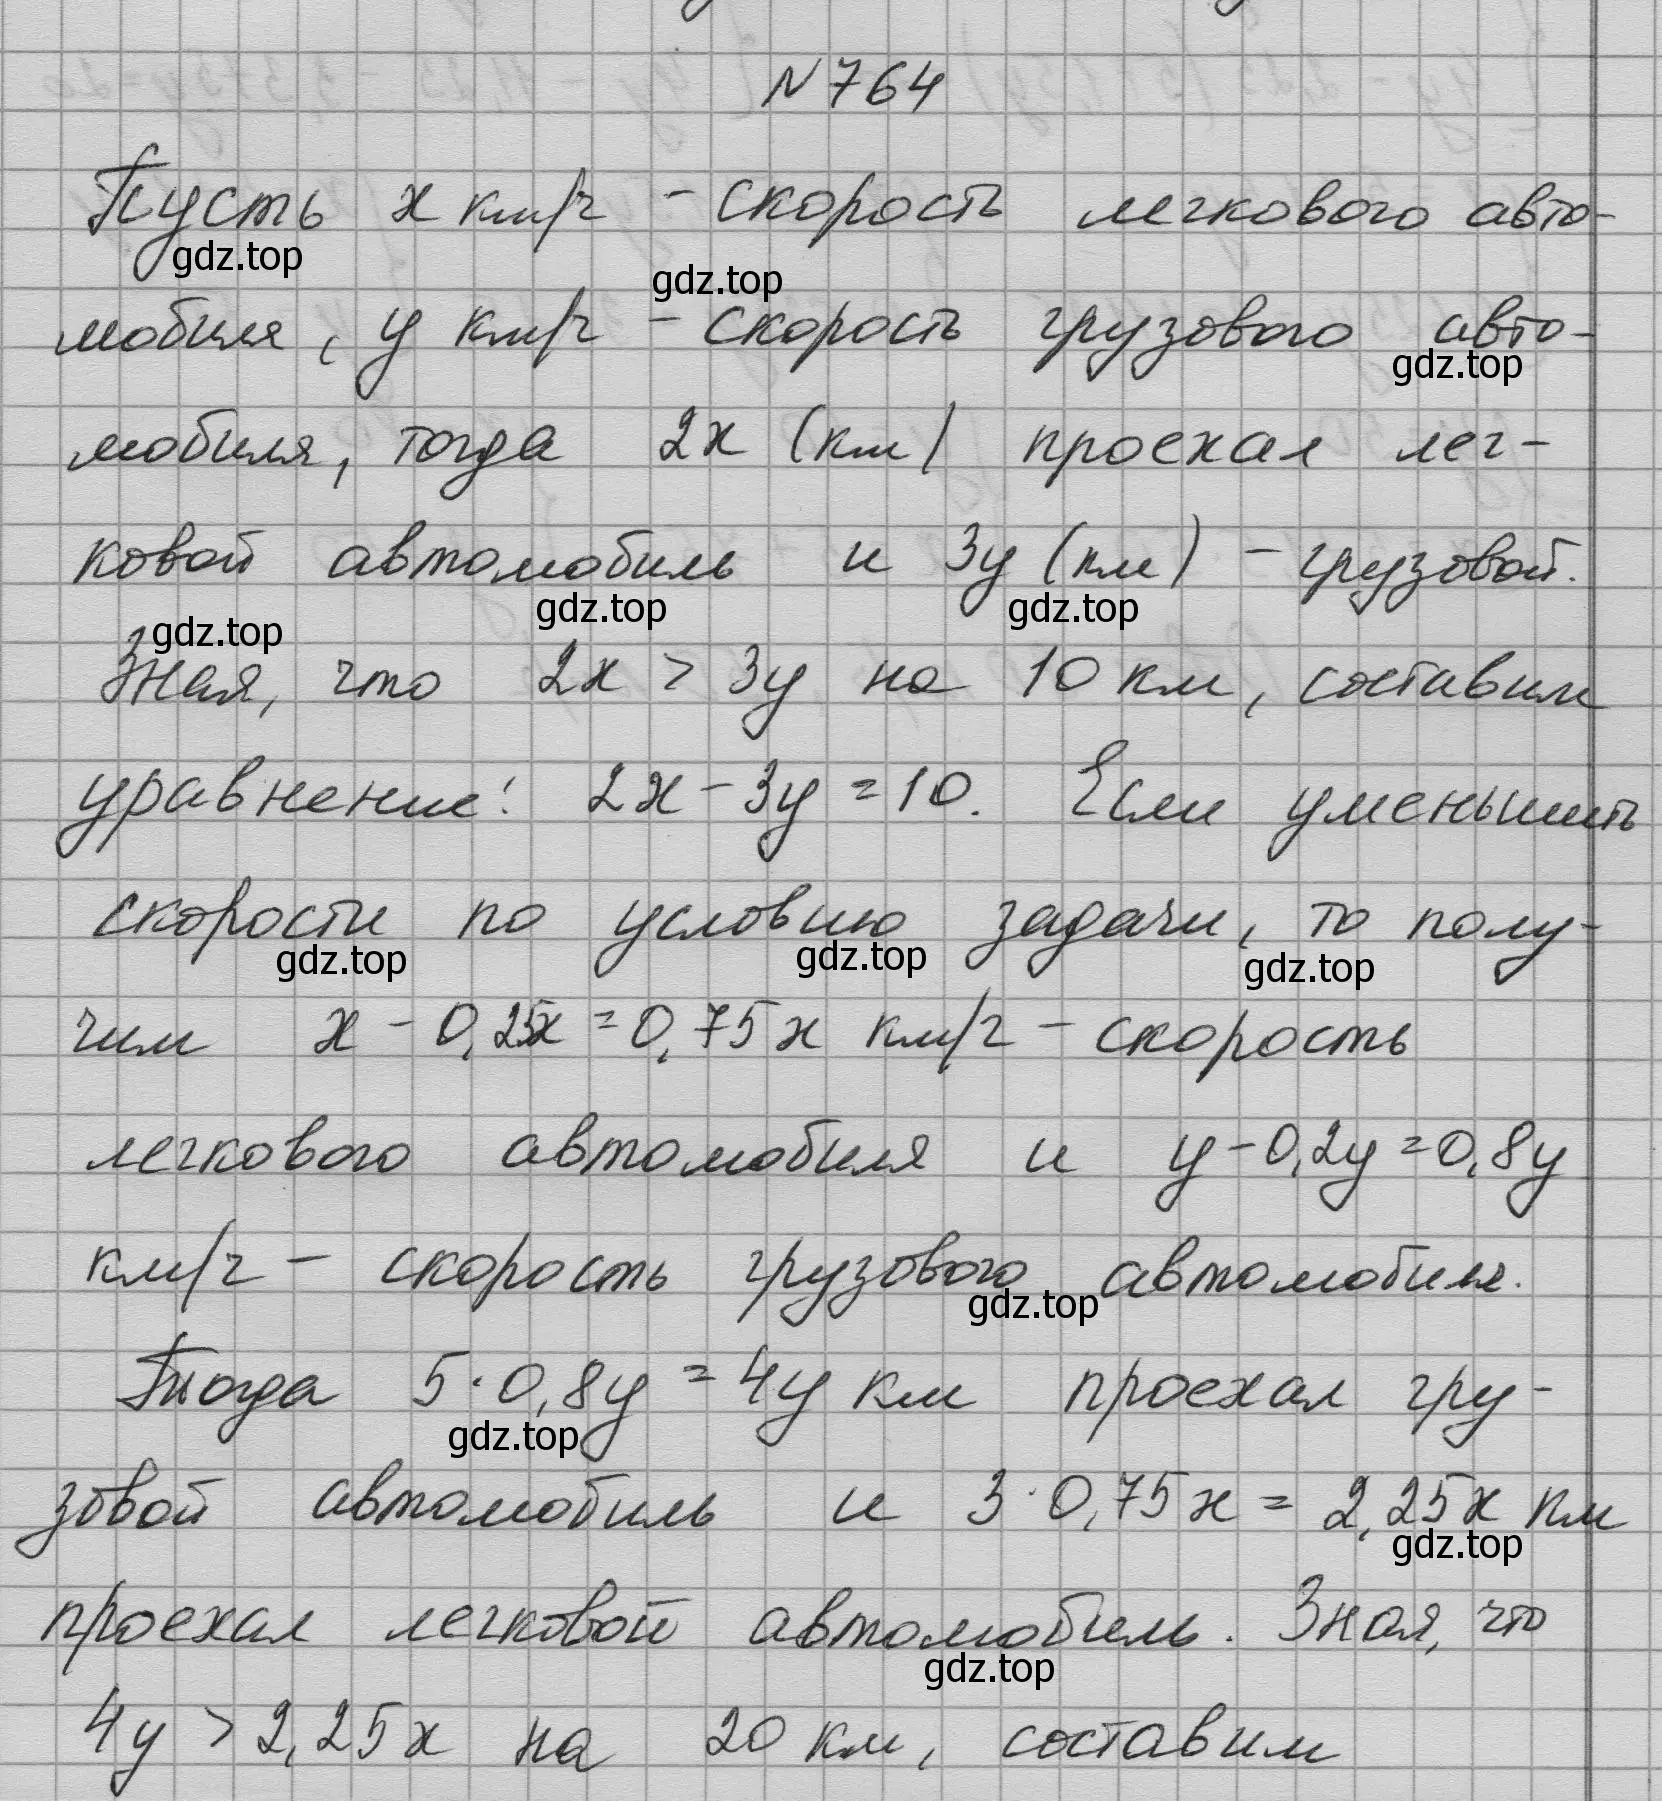 N 764
Пусть x км/ч - скорость легкового авто-
gdz.top
gdz.top
мобиля, y км/ч - скорость грузового авто-
gdz.top
мобиля, тогда 2x (км) проехал лег-
ковой автомобиль и 3y (км) - грузовой.
gdz.top
gdz.top
gdz.top
Зная, что 2x > 3y на 10 км, составим
уравнение: 2x - 3y = 10. Если уменьшить
скорости по условию задачи, то полу-
gdz.top
gdz.top
gdz.top
чим x - 0,25x = 0,75x км/ч - скорость
легкового автомобиля и y - 0,2y = 0,8y
км/ч - скорость грузового автомобиля.
gdz.top
Тогда 5·0,8y = 4y км проехал гру-
gdz.top
зовой автомобиль и 3·0,75x = 2,25x км
gdz.top
проехал легковой автомобиль. Зная, что
gdz.top
4y > 2,25x на 20 км, составим